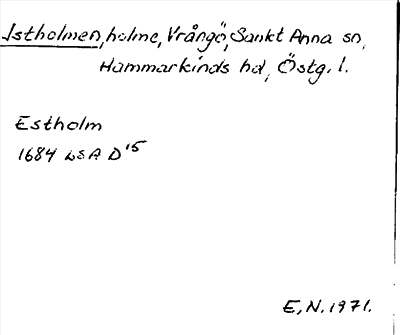 Istholmen, holme, Vrångö, Sankt Anna sn,
Hammarkinds hd, Östg. l.
Estholm
1684 LSA D15
E, N. 1971.